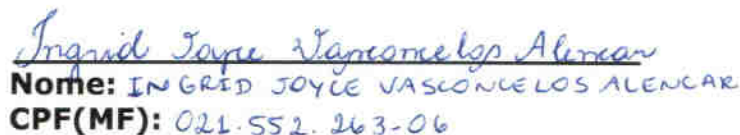 Ingrid Joyce Vasconcelos Alencar
Nome: INGRID JOYCE VASCONCELOS ALENCAR
CPF(MF): 021.552.263-06